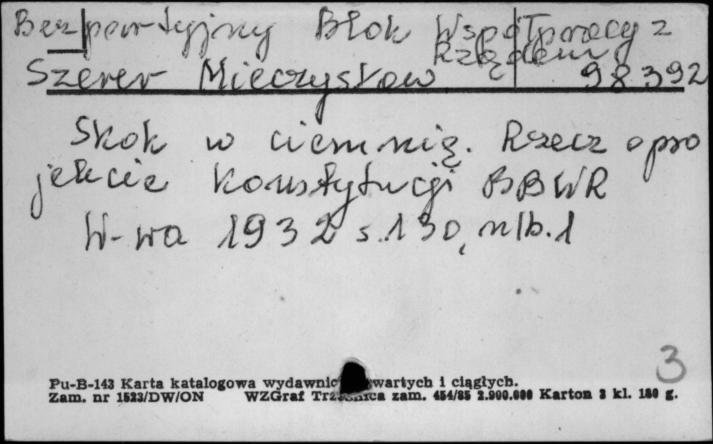 Bezpartyjny Blok Współpracy z
Rządem
Szerer Mieczysław 98392
Skok w ciemnię. Rzecz o pro
jekcie Konstytucji BBWR
W-wa 1932 s. 130, nlb. 1
3
Pu-B-143 Karta katalogowa wydawnic wartych i ciągłych.
Zam. nr 1523/DW/ON WZGraf zam. 454/85 2.900.000 Karton 3 kl. 180 g.